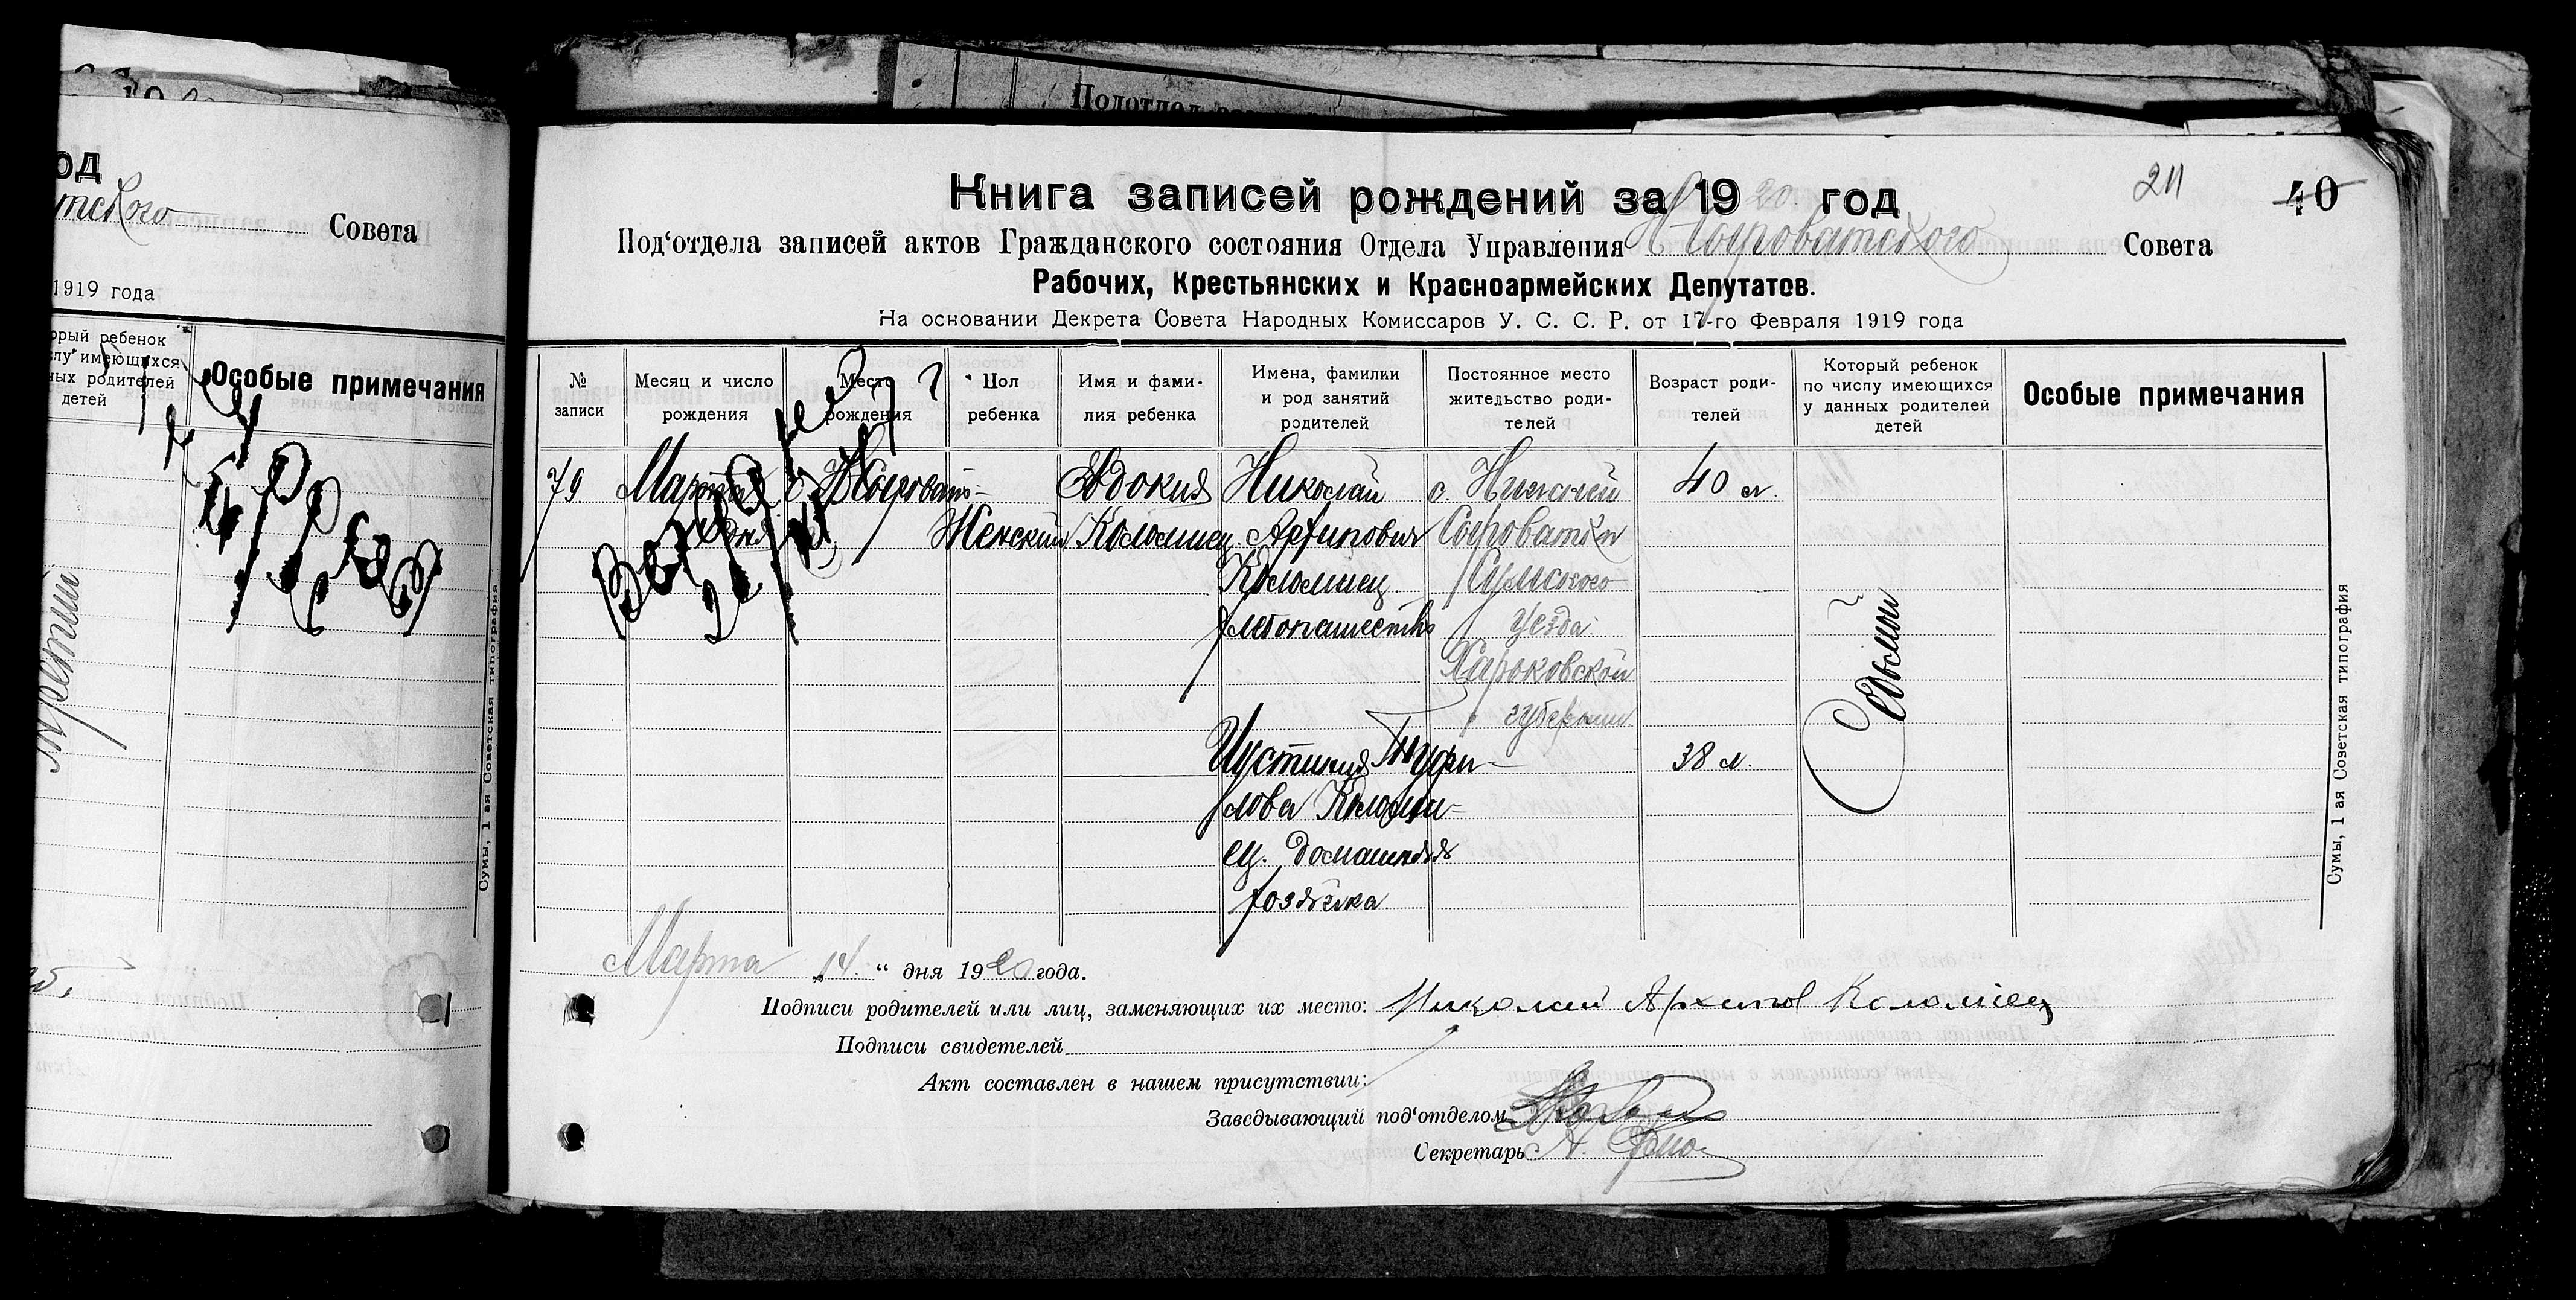 од
Совета
1919 года
орый ребенок
слу имеющихся
ных родителей
детей
Особые примечания
третий
Сумы, 1 ая Советская типография
Подотдел
211
40
Книга записей рождений за 1920 год
Под'отдела записей актов Гражданского состояния Отдела Управления Н Сыроватского Совета
Рабочих, Крестьянских и Красноармейских Депутатов.
На основании Декрета Совета Народных Комиссаров У. С. С. Р. от 17-го Февраля 1919 года
№ записи
Месяц и число рождения
Место рождения
Пол ребенка
Имя и фами-лия ребенка
Имена, фамилии и род занятий родителей
Постоянное место жительство роди-телей
Возраст роди-телей
Который ребенок по числу имеющихся у данных родителей детей
Особые примечания
79 Марта Н Сыровато- Евдокия Николай с. Нижней 40 л.
Женский Коломиец Архипович Сыроватки
Коломиец Сумского
хлебопашество уезда
Харьковской
губернии
Иустиния 38 л.
лова Коломи-
ец. домашняя
хозяйка
Седьмой
Марта 14 " дня 1920 года.
Подписи родителей или лиц, заменяющих их место: Николай Архипов Коломиец
Подписи свидетелей
Акт составлен в нашем присутствии:
Заведывающий под'отделом
Секретарь
Сумы, 1 ая Советская типография